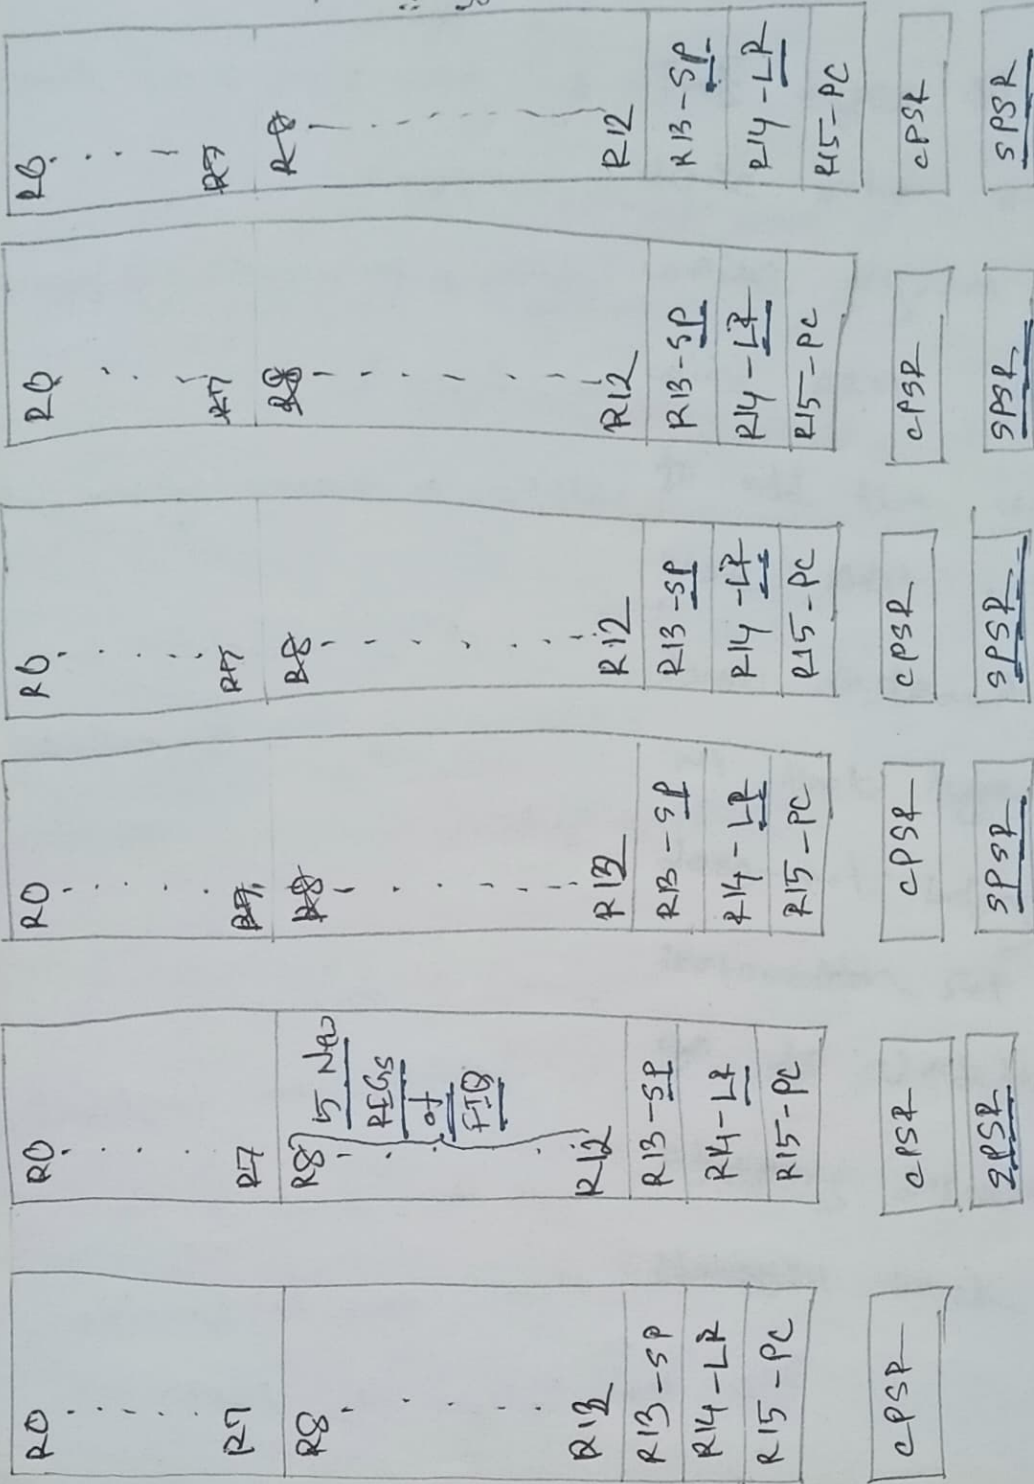 R0
R7
R8
R12
R13-SP
R14-LR
R15-PC
CPSR
R0
R7
R8
5 New
REGS
of
FIQ
R12
R13-SP
R14-LR
R15-PC
CPSR
SPSR
R0
R7
R8
R12
R13-SP
R14-LR
R15-PC
CPSR
SPSR
R0
R7
R8
R12
R13-SP
R14-LR
R15-PC
CPSR
SPSR
R0
R7
R8
R12
R13-SP
R14-LR
R15-PC
CPSR
SPSR
R0
R7
R8
R12
R13-SP
R14-LR
R15-PC
CPSR
SPSR